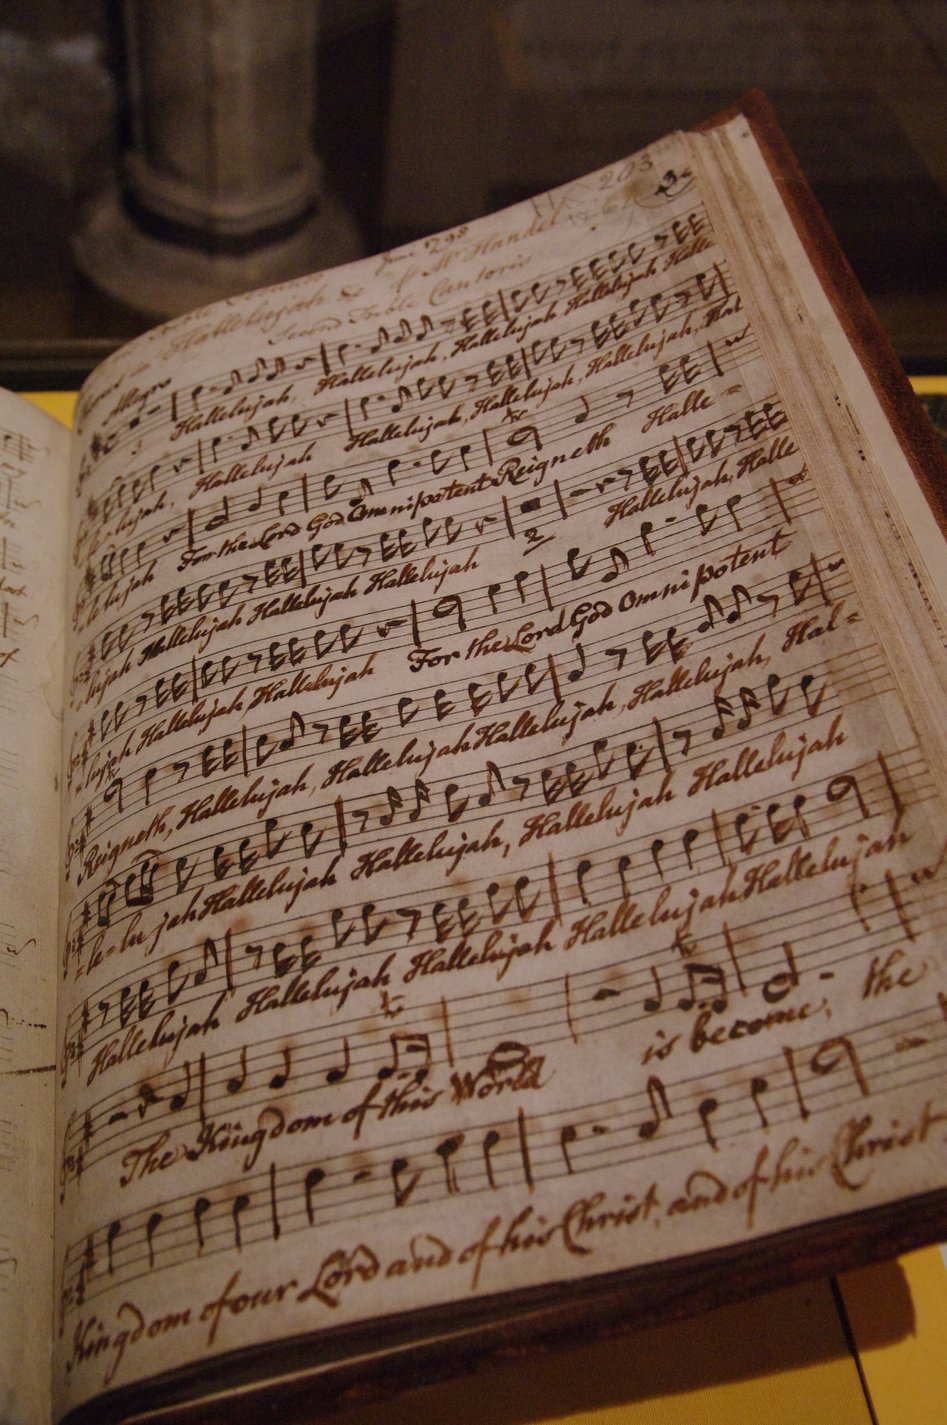 203
Hallelujah &c of Mr Handel
Second Treble Cantoris
Allegro
Hallelujah, Hallelujah, Hallelujah Hallelujah Halle
lujah, Hallelujah Hallelujah, Hallelujah, Hallelujah, Hal
lelujah For the Lord God Omnipotent Reigneth Halle =
lujah Hallelujah Hallelujah Hallelujah 2 Hallelujah, Halle
lujah Hallelujah Hallelujah For the Lord God Omnipotent
Reigneth, Hallelujah, Hallelujah Hallelujah, Hallelujah, Hal =
= le = lu jah Hallelujah Hallelujah, Hallelujah Hallelujah
Hallelujah Hallelujah Hallelujah Hallelujah Hallelujah
The Kingdom of this World is become, the
Kingdom of our Lord and of his Christ, and of his Christ